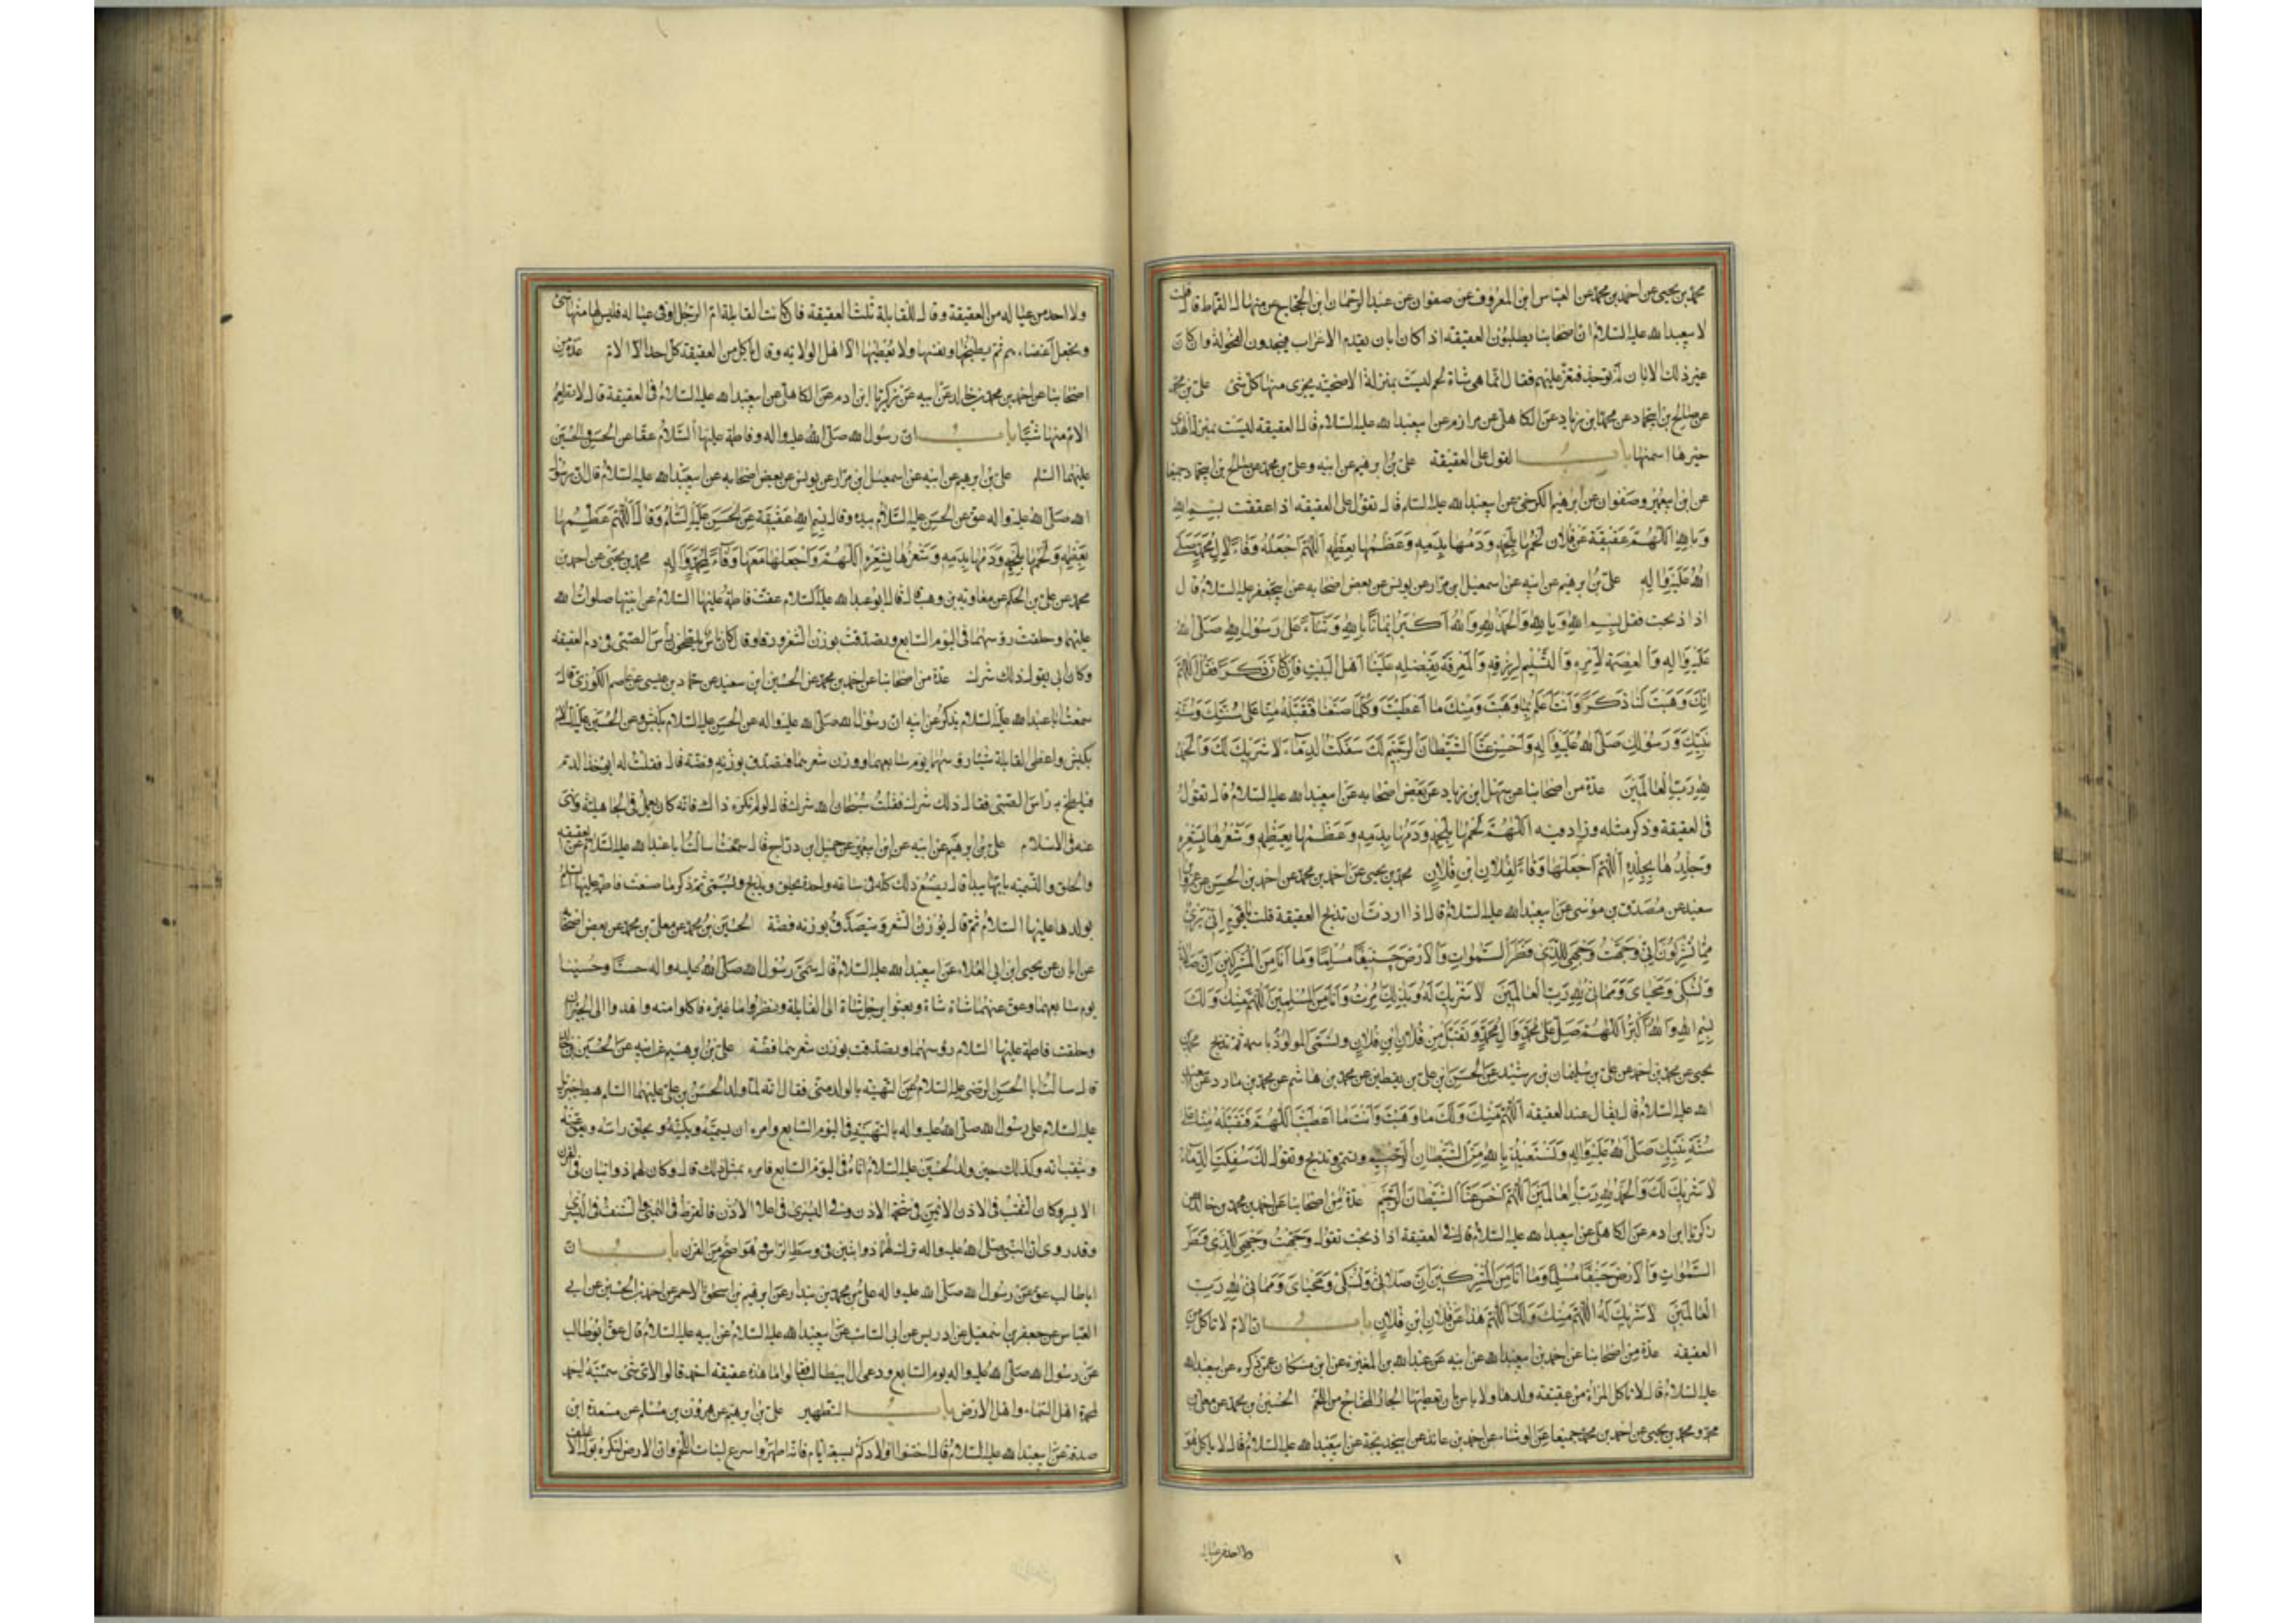 محمد بن يحيى عن احمد بن محمد عن العباس ابن المعروف عن صفوان عن عبد الرحمان ابن الحجاج عن منهال القماط قال قلت
لابيعبد الله عليه السلام ان اصحابنا يطلبون العقيقة اذا كان ابان يقدم الاعراب فيجدون الفحولة وان كان
غير ذلك الابان لم توجد فتعز عليهم فقال انما هى شاة لحم ليست بمنزلة الاضحية يجزى منها كل شئ علي بن محمد
عن صالح بن ابيحماد عن محمد ابن زياد عن الكاهلى عن مرازم عن ابيعبد الله عليه السلام قال العقيقة ليست بمنزلة الهدى
خيرها اسمنها باب القول على العقيقة علي بن ابرهيم عن ابيه وعلي بن محمد عن صالح بن ابيحماد جميعا
عن ابن ابيعمير وصفوان عن ابرهيم الكرخى عن ابيعبد الله عليه السلام قال تقول على العقيقه اذا عققت بسم الله
وبالله اللهم عقيقة عن فلان لحمها بلحمه ودمها بدمه وعظمها بعظمه اللهم اجعله وقاء لال محمد صلى
الله عليه واله علي بن ابرهيم عن ابيه عن اسمعيل بن مرار عن يونس عن بعض اصحابه عن ابيجعفر عليه السلام قال
اذا ذبحت فقل بسم الله وبالله والحمد لله والله اكبر ايمانا بالله وثناء على رسول الله صلى الله
عليه واله والعصمة لامره والشكر لرزقه والمعرفة بفضله علينا اهل البيت فان كان ذكرا فقل اللهم
انك وهبت لنا ذكرا وانت اعلم بما وهبت ومنك ما اعطيت وكلما صنعنا فتقبله منا على سنتك وسنة
نبيك ورسولك صلى الله عليه واله واخسئ عنا الشيطان الرجيم لك سفكت الدماء لا شريك لك والحمد
لله رب العالمين عدة من اصحابنا عن سهل ابن زياد عن بعض اصحابه عن ابيعبد الله عليه السلام قال تقول
فى العقيقة وذكر مثله وزاد فيه اللهم لحمها بلحمه ودمها بدمه وعظمها بعظمه وشعرها بشعره
وجلدها بجلده اللهم اجعلها وقاء لفلان ابن فلان محمد بن يحيى عن احمد بن محمد عن احمد بن الحسن عن عمرو بن
سعيد عن مصدق بن موسى عن ابيعبد الله عليه السلام قال اذا اردت ان تذبح العقيقة قلت يا قوم انى برئ
مما تشركون انى وجهت وجهى للذى فطر السموات والارض حنيفا مسلما وما انا من المشركين ان صلاتى
ونسكى ومحياى ومماتى لله رب العالمين لا شريك له وبذلك امرت وانا من المسلمين اللهم منك ولك
بسم الله والله اكبر اللهم صل على محمد وال محمد وتقبل من فلان ابن فلان وتسمى المولود باسمه ثم تذبح محمد بن
يحيى عن محمد بن احمد عن علي بن سليمان بن رشيد عن الحسن ابن علي بن يقطين عن محمد بن هاشم عن محمد بن مارد عن ابيعبد
الله عليه السلام قال يقال عند العقيقه اللهم منك ولك ما وهبت وانت ما اعطيت اللهم فتقبله منا على
سنة نبيك صلى الله عليه واله ونستعيذ بالله من الشيطان الرجيم وتسمى وتذبح وتقول لك سفكت الدماء
لا شريك لك والحمد لله رب العالمين اللهم اخسئ عنا الشيطان الرجيم عدة من اصحابنا عن احمد بن محمد بن خالد عن
زكريا ابن ادم عن الكاهلى عن ابيعبد الله عليه السلام قال فى العقيقة اذا ذبحت تقول وجهت وجهى للذى فطر
السموات والارض حنيفا مسلما وما انا من المشركين ان صلاتى ونسكى ومحياى ومماتى لله رب
العالمين لا شريك له اللهم منك ولك اللهم هذا عن فلان ابن فلان باب ان الام لا تاكل من
العقيقه عدة من اصحابنا عن احمد بن ابيعبد الله عن ابيه عن عبد الله بن المغيرة عن ابن مسكان عمن ذكره عن ابيعبد الله
عليه السلام قال لا تاكل المراة من عقيقه ولدها ولا باس بان تعطيها الجار المحتاج من اللحم الحسين بن محمد عن معلى بن
محمد ومحمد بن يحيى عن احمد بن محمد جميعا عن الوشاء عن احمد بن عائذ عن ابيخديجة عن ابيعبد الله عليه السلام قال لا ياكل هو
ولا احد من عياله
ولا احد من عياله من العقيقة وقال للقابلة ثلث العقيقة فان كانت القابلة ام الرجل او فى عياله فليس لها منها شئ
وتجعل اعضاء ثم يطبخها ويقسمها ولا يعطيها الا اهل الولاية وقال ياكل من العقيقة كل احد الا الام عدة من
اصحابنا عن احمد بن محمد بن خالد عن ابيه عن زكريا ابن ادم عن الكاهلى عن ابيعبد الله عليه السلام فى العقيقة قال لا تطعم
الام منها شيئا باب ان رسول الله صلى الله عليه واله وفاطمة عليها السلام عقا عن الحسن والحسين
عليهما السلم علي بن ابرهيم عن ابيه عن اسمعيل ابن مرار عن يونس عن بعض اصحابه عن ابيعبد الله عليه السلام قال عق رسول
الله صلى الله عليه واله عن الحسن عليه السلام بيده وقال بسم الله عقيقة عن الحسن عليه السلام وقال اللهم عظمها
بعظمه ولحمها بلحمه ودمها بدمه وشعرها بشعره اللهم واجعلها معها وقاء لمحمد واله محمد بن يحيى عن احمد بن
محمد عن علي بن الحكم عن معاوية بن وهب قال قال ابو عبد الله عليه السلام عقت فاطمة عليها السلام عن ابنيها صلوات الله
عليهما وحلقت رؤسهما فى اليوم السابع وتصدقت بوزن الشعر ورقا وقال كان ناس يلطخون راس الصبى فى دم العقيقه
وكان ابى يقول ذلك شرك عدة من اصحابنا عن احمد بن محمد عن الحسين ابن سعيد عن حماد بن عيسى عن عاصم الكوزى قال
سمعت ابا عبد الله عليه السلام يذكر عن ابيه ان رسول الله صلى الله عليه واله عق عن الحسن عليه السلام بكبش وعن الحسين عليه السلم
بكبش واعطى القابلة شيئا وحلق رؤسهما يوم سابعهما ووزن شعرهما فتصدق بوزنه فضة قال فقلت له ايؤخذ الدم
فيلطخ به راس الصبى فقال ذلك شرك فقلت سبحان الله شرك فقال لو لم يكن ذاك فانه كان يعمل فى الجاهلية ونهى
عنه فى الاسلام علي بن ابرهيم عن ابيه عن ابن ابيعمير عن جميل ابن دراج قال سالت ابا عبد الله عليه السلام عن العقيقه
والحلق والتسمية بايها يبدا قال يصنع ذلك كله فى ساعة واحدة يحلق ويذبح ويسمى ثم ذكر ما صنعت فاطمة عليها السلم
بولدها عليها السلام ثم قال يوزن الشعر ويتصدق بوزنه فضة الحسين بن محمد عن معلى بن محمد عن بعض اصحابنا
عن ابان عن يحيى ابن ابى العلاء عن ابيعبد الله عليه السلام قال سمى رسول الله صلى الله عليه واله حسنا وحسينا
يوم سابعهما وعق عنهما شاة شاة وبعثوا برجل شاة الى القابلة ونظروا ما غيره فاكلوا منه واهدوا الى الجيران
وحلقت فاطمة عليها السلام رؤسهما وتصدقت بوزن شعرهما فضة علي بن ابرهيم عن ابيه عن الحسين بن خالد
قال سالت ابا الحسن الرضى عليه السلام عن التهنية بالولد متى فقال انه لما ولد الحسن بن على عليهما السلم هبط جبرئيل
عليه السلام على رسول الله صلى الله عليه واله بالتهنية فى اليوم السابع وامره ان يسميه ويكنيه ويحلق راسه ويعق عنه
ويثقب اذنه وكذلك حين ولد الحسين عليه السلام اتاه فى اليوم السابع فامره بمثل ذلك قال وكان لهما ذوابتان فى القرن
الايسر وكان الثقب فى الاذن الايمن فى شحمة الاذن وفى اليسرى فى اعلا الاذن فالقرط فى اليمنى والشنف فى اليسرى
وقد روى ان النبى صلى الله عليه واله ترك لهما ذوابتين فى وسط الراس وهو اصح من القرن باب ان
اباطالب عق عن رسول الله صلى الله عليه واله علي بن محمد بن بندار عن ابرهيم بن اسحق الاحمر عن احمد بن الحسين عن ابى
العباس عن جعفر بن اسمعيل عن ادريس عن ابى السائب عن ابيعبد الله عليه السلام عن ابيه عليه السلام قال عق ابوطالب
عن رسول الله صلى الله عليه واله يوم السابع ودعى ال ابيطالب فقالوا ما هذه عقيقه احمد قالوا لاى شئ سميته احمد
لمحمدة اهل السماء واهل الارض باب التطهير علي بن ابرهيم عن هرون بن مسلم عن مسعدة ابن
صدقة عن ابيعبد الله عليه السلام قال اختنوا اولادكم لسبعة ايام فانه اطهر واسرع لنبات اللحم وان الارض لتكره بول الاغلف